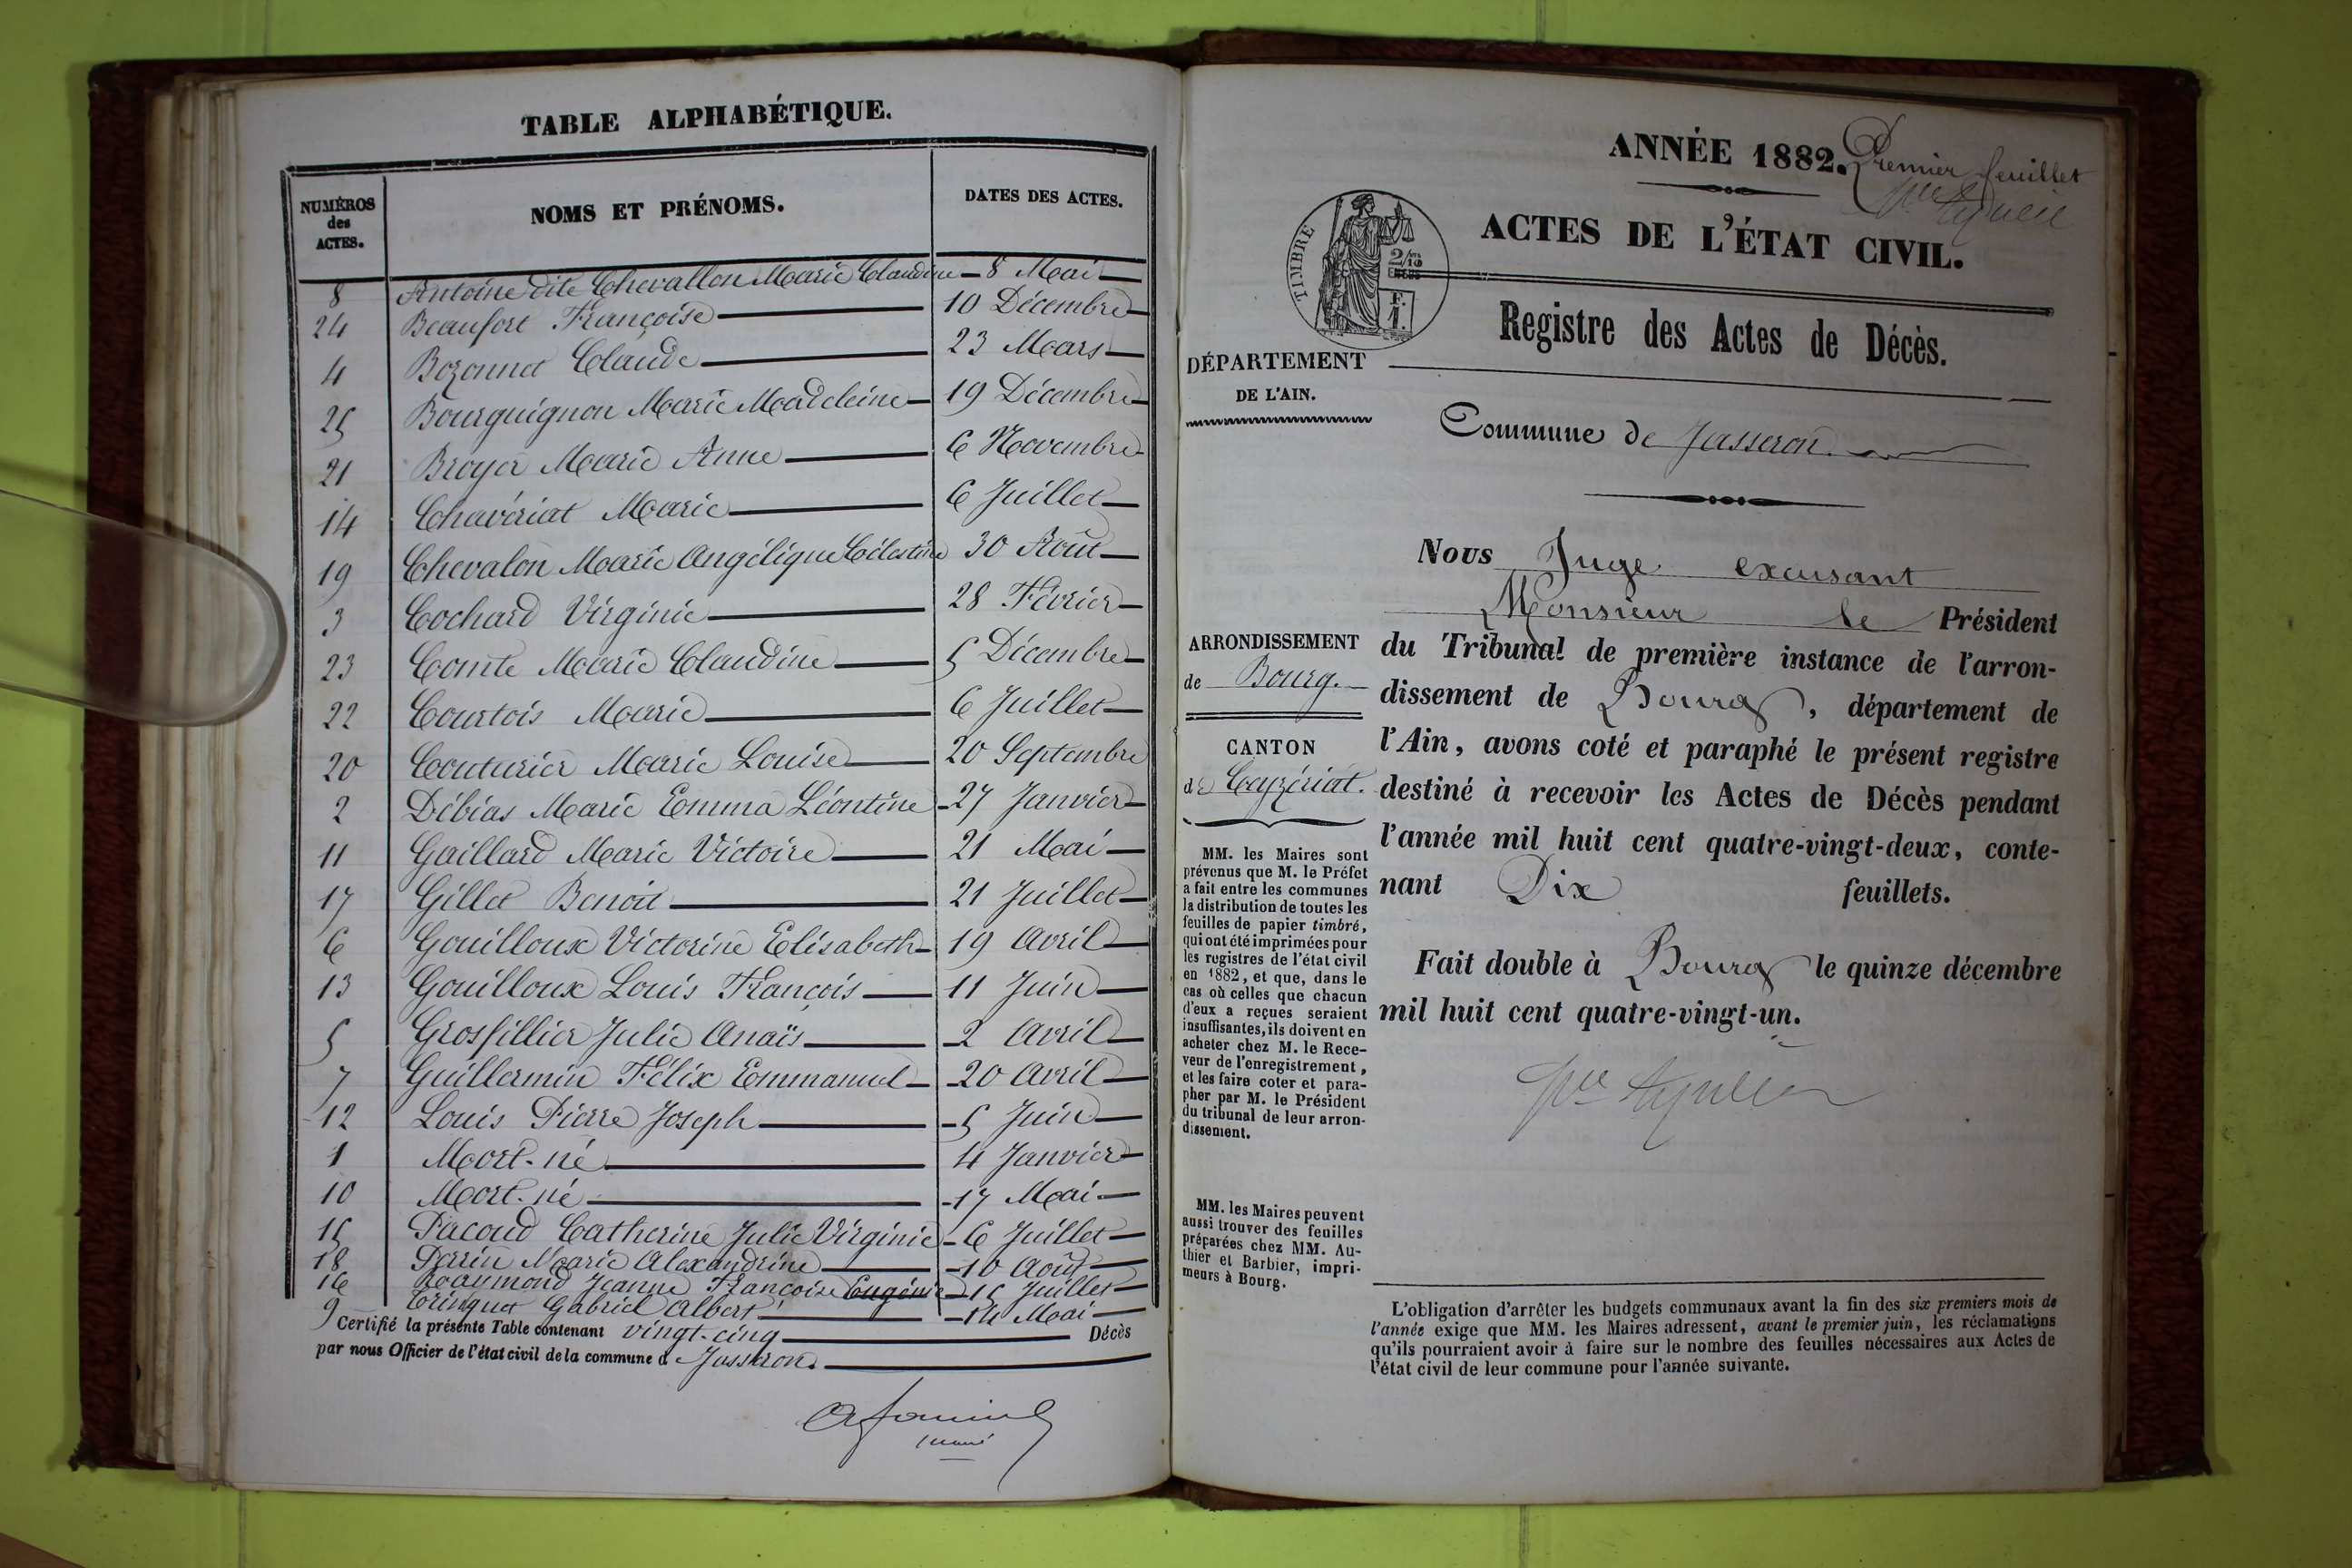 TABLE ALPHABÉTIQUE.
NUMÉROS des ACTES. NOMS ET PRÉNOMS. DATES DES ACTES.
8 Antoine dite Chevallon Marie Claudine 8 Mai
24 Beaufort Françoise 10 Décembre
4 Bozonnet Claude 23 Mars
25 Bourguignon Marie Madeleine 19 Décembre
21 Broyer Marie Anne 6 Novembre
14 Chavériat Marie 6 Juillet
19 Chevalon Marie Angélique Célestine 30 Août
3 Cochard Virginie 28 Février
23 Comte Marie Claudine 5 Décembre
22 Courtois Marie 6 Juillet
20 Couturier Marie Louise 20 Septembre
2 Débias Marie Emma Léontine 27 Janvier
11 Gaillard Marie Victoire 21 Mai
17 Gillet Benoit 21 Juillet
6 Gouilloux Victorine Elisabeth 19 Avril
13 Gouilloux Louis François 11 Juin
5 Grosfillier Julie Anaïs 2 Avril
7 Guillermin Félix Emmanuel 20 Avril
12 Louis Pierre Joseph 5 Juin
1 Mort-né 4 Janvier
10 Mort-né 17 Mai
15 Pacoud Catherine Julie Virginie 6 Juillet
18 Perrin Marie Alexandrine 10 Août
16 Raymond Jeanne Françoise Eugénie 15 Juillet
9 Tringuet Gabriel Albert 14 Mai
Certifié la présente Table contenant vingt-cinq Décès
par nous Officier de l'état civil de la commune d Jasseron.
ANNÉE 1882. Premier feuillet
ACTES DE L'ÉTAT CIVIL.
TIMBRE
2/10
EN SUS
F.
1.
Registre des Actes de Décès.
DÉPARTEMENT
DE L'AIN.
Commune de Jasseron.
ARRONDISSEMENT
de Bourg.
CANTON
de Ceyzériat.
MM. les Maires sont
prévenus que M. le Préfet
a fait entre les communes
la distribution de toutes les
feuilles de papier timbré,
qui ont été imprimées pour
les registres de l'état civil
en 1882, et que, dans le
cas où celles que chacun
d'eux a reçues seraient
insuffisantes, ils doivent en
acheter chez M. le Rece-
veur de l'enregistrement,
et les faire coter et para-
pher par M. le Président
du tribunal de leur arron-
dissement.
MM. les Maires peuvent
aussi trouver des feuilles
préparées chez MM. Au-
thier et Barbier, impri-
meurs à Bourg.
Nous Juge excusant
Monsieur le Président
du Tribunal de première instance de l'arron-
dissement de Bourg, département de
l'Ain, avons coté et paraphé le présent registre
destiné à recevoir les Actes de Décès pendant
l'année mil huit cent quatre-vingt-deux, conte-
nant Dix feuillets.
Fait double à Bourg le quinze décembre
mil huit cent quatre-vingt-un.
L'obligation d'arrêter les budgets communaux avant la fin des six premiers mois de
l'année exige que MM. les Maires adressent, avant le premier juin, les réclamations
qu'ils pourraient avoir à faire sur le nombre des feuilles nécessaires aux Actes de
l'état civil de leur commune pour l'année suivante.